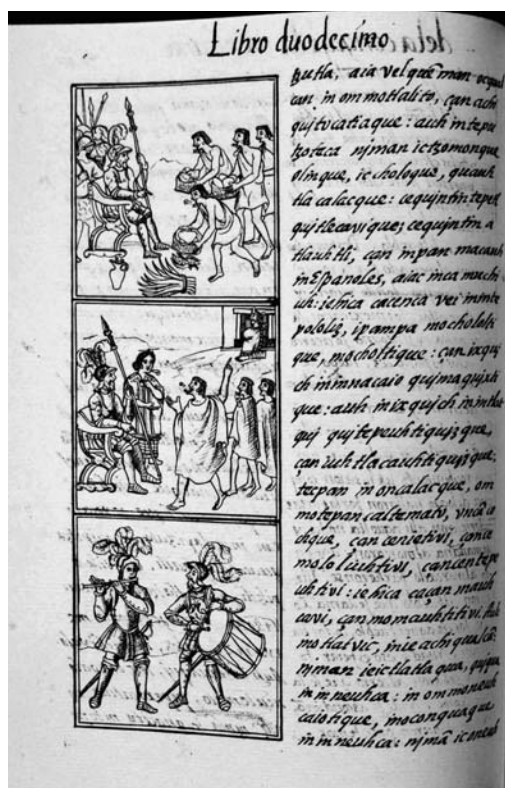 Libro duodecimo
aia vel quēman
can in ommotlalito, çan achi
quitvcatiaque: auh in tepu
tzoteca njman ic tzomonque
olinque, ic choloque, quauh
tla calacque: cequintin tepetl
qujtlecavique; cequintin a
tlauhtli, çan inpan macauh
in Españoles, aiac inca muchi
uh: iehica cacenca vei in inte
pololiz, ipampa mochololti
que, mocholtique: çan ixquj
ch in innacaio qujmaqujxti
que: auh in ixqujch in intlat
quj qujtepeuhtiqujzque,
çan iuh tlacauhtiqujzque:
tecpan in oncalacque, om
motepancaltemato, vncā
çan cenietivi, çan
mololiuhtivi, çan centepe
uhtivi: iehica caçan mauh
cavi, çan momauhtitivi,
in ie achi
njman ieic tlatlaqua,
in inneuhca: in ommoneuh
caiotique, in oconquaque
in inneuhca: njmā